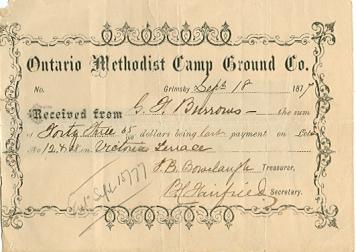 Ontario Methodist Camp Ground Co.
No. Grimsby Sept 18 1877
Received from G. F. Burrows — the sum
of Forty three 65/00 dollars being last payment on Lots
No 12 & on Victoria Terrace
Treasurer,
Secretary.
Sept 15/77